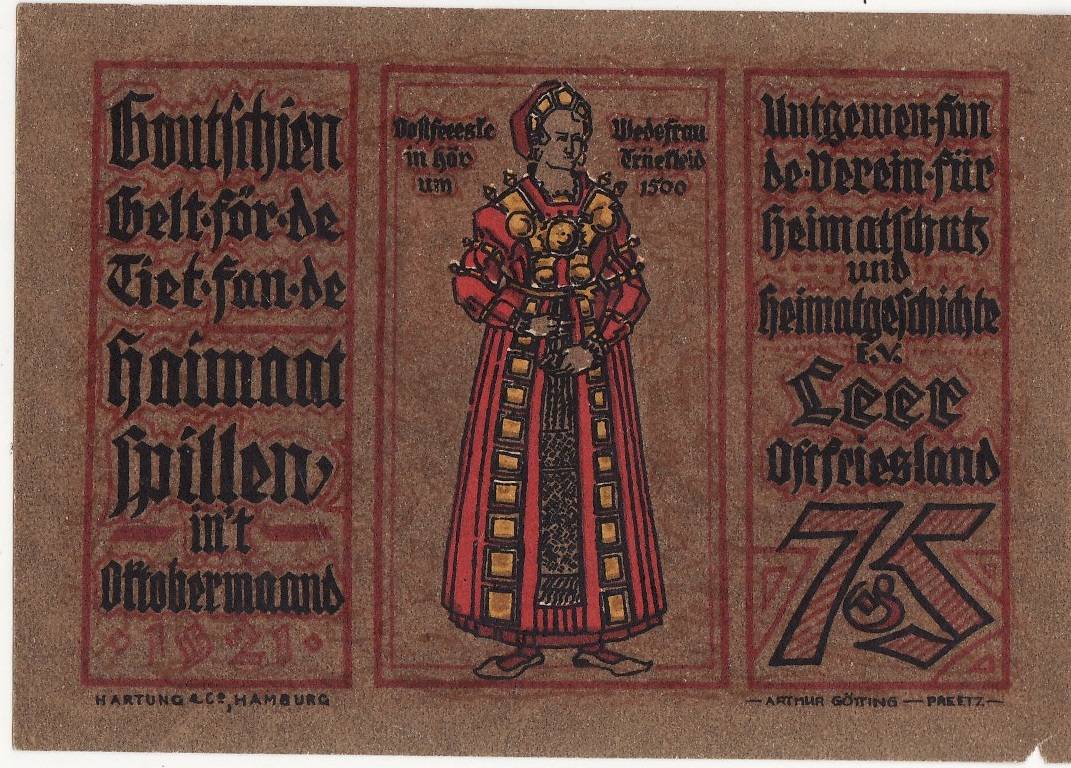 Goutschien
Gelt·för·de
Tiet·fan·de
Haimaat
spillen,
in't
Oktobermaand
·1921·
HARTUNG & Co, HAMBURG
in Höv
um
Wedefrau
1500
Uutgewen·fan
de·Verein·für
Heimatschutz
und
Heimatgeschichte
E.V.
Leer
Ostfriesland
75
— ARTHUR GÖTTING — PREETZ —